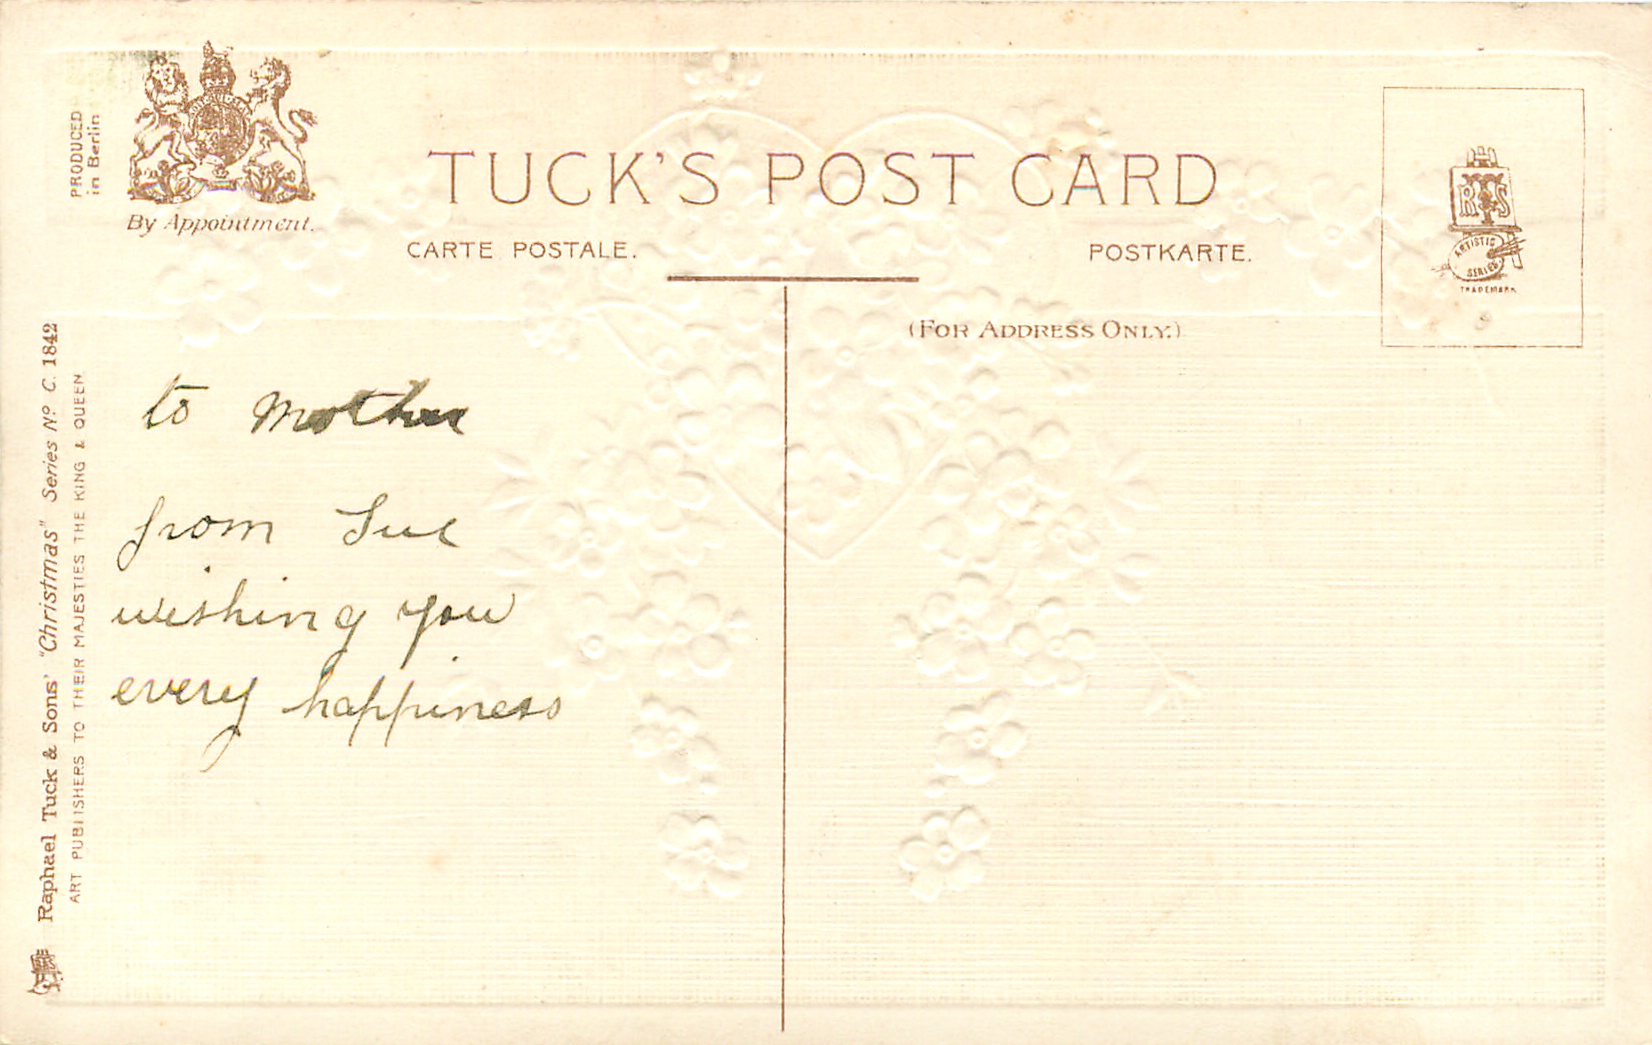 PRODUCED
in Berlin
By Appointment.
TUCK'S POST CARD
CARTE POSTALE.
POSTKARTE.
(FOR ADDRESS ONLY.)
R T S
ARTISTIC
SERIES
TRADEMARK
Raphael Tuck & Sons' "Christmas" Series Nº C. 1842
ART PUBLISHERS TO THEIR MAJESTIES THE KING & QUEEN
to Mother
from Sue
wishing you
every happiness